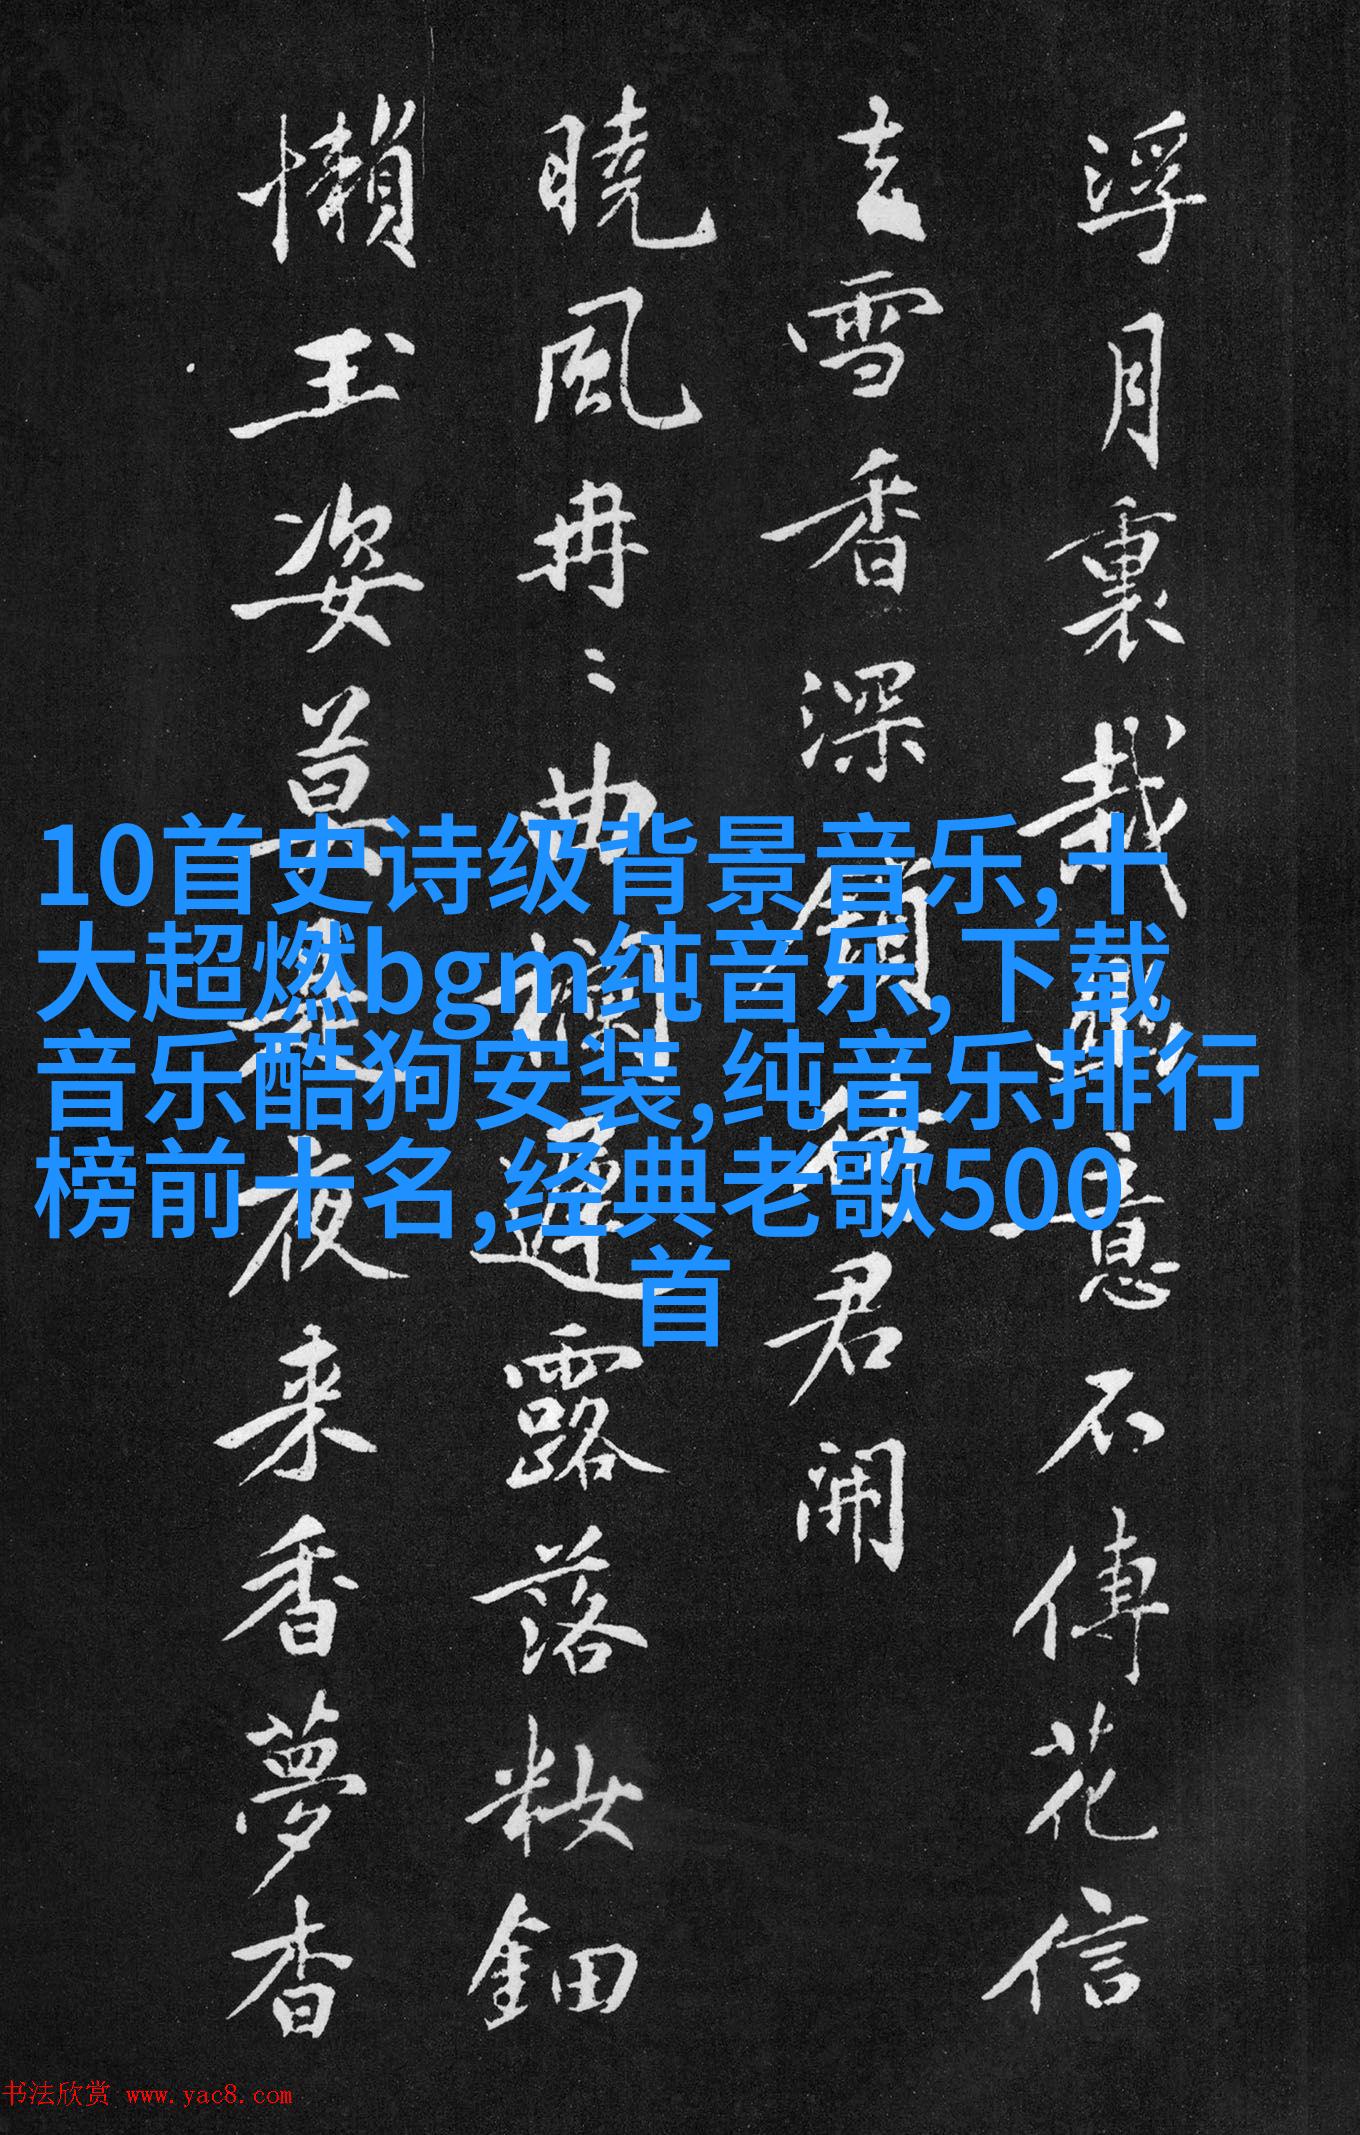 浮月裏意不傳花信
雪香深鎖君開
曉風冉〻曲欄邊露落籹鈿
懶玉姿莫是夜来香夢杳
10首史诗级背景音乐,十
大超燃bgm纯音乐,下载
音乐酷狗安装,纯音乐排行
榜前十名,经典老歌500
首
书法欣赏 www.yac8.com